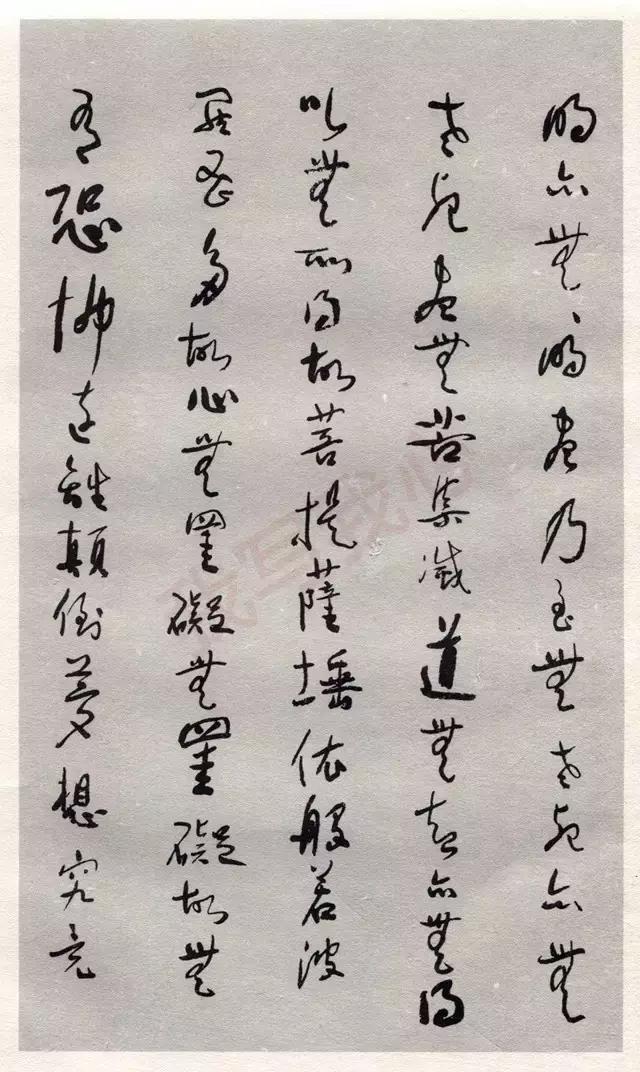 明亦無、明盡乃至無老死亦無
老死盡無苦集滅道無智亦無得
以無所得故菩提薩埵依般若波
羅蜜多故心無罣礙無罣礙故無
有恐怖遠離顛倒夢想究竟